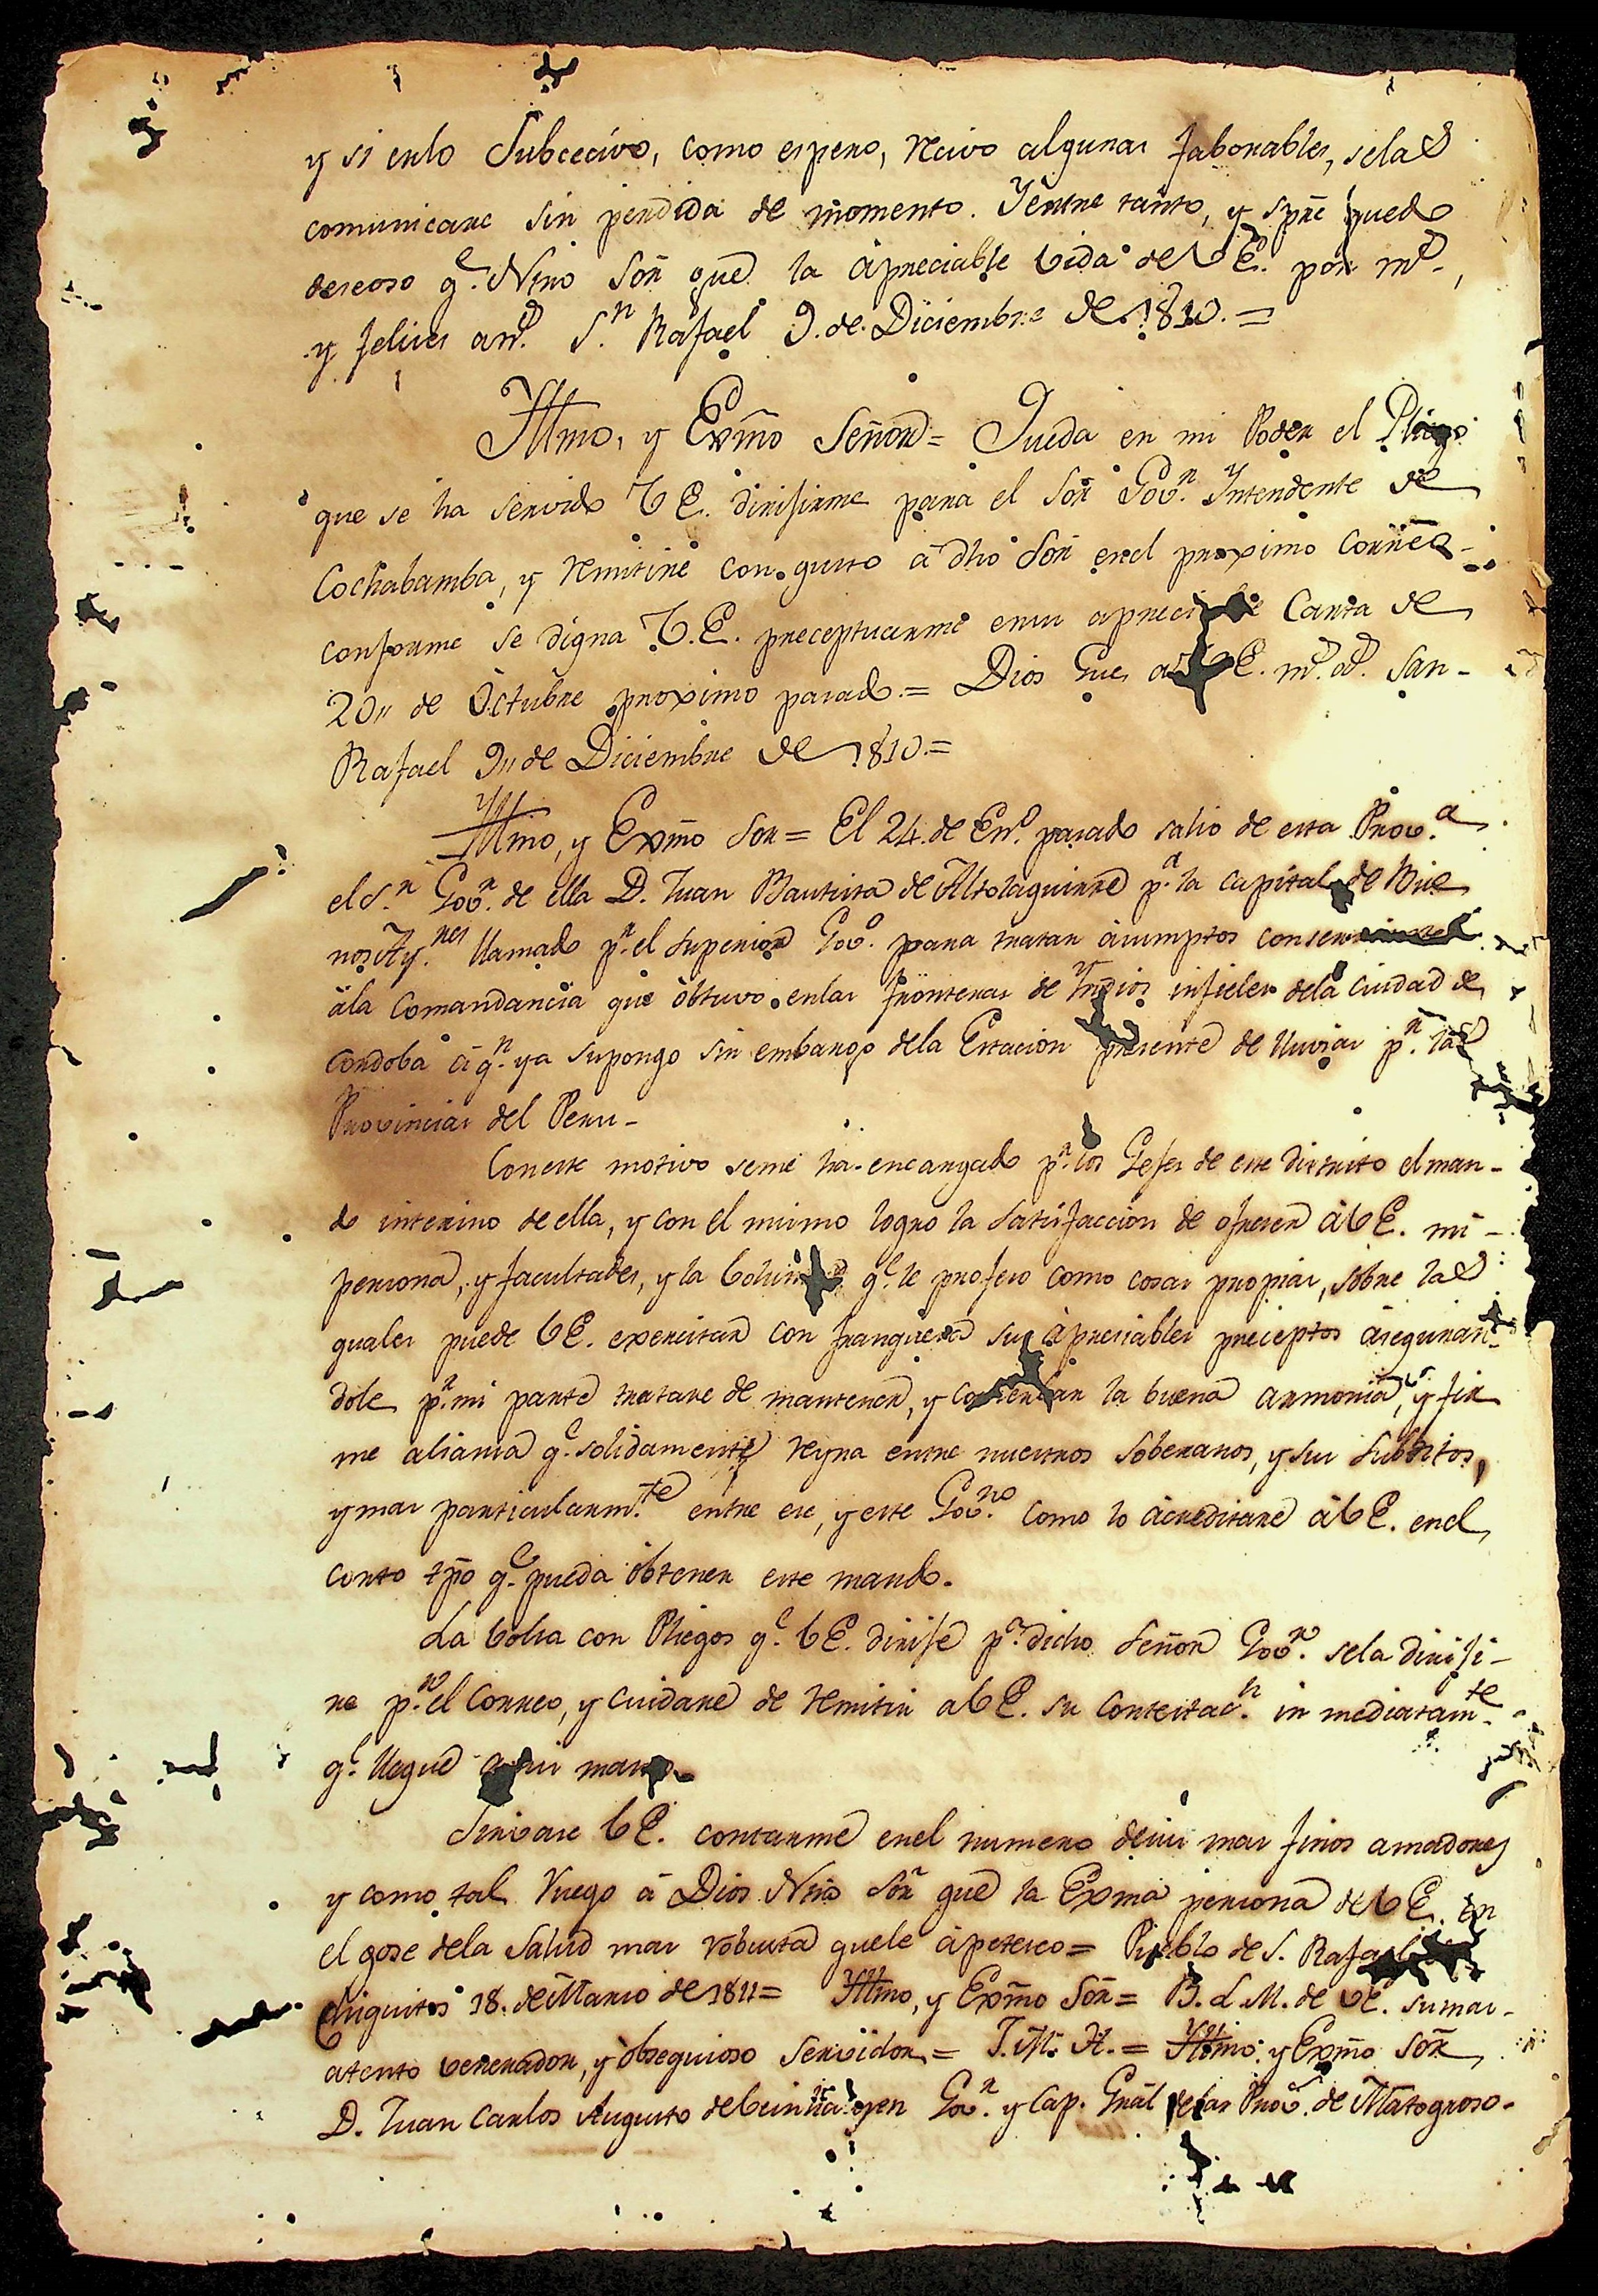 y si enlo Subcecivo, como espero, recivo algunas faborables, selas
comunicare sin perdida de momento. Yentre tanto, y spñe quedo
deseoso q.e Ntro Sōr gue. la apreciable Vida de V E. por m.s
y felices an.s S.n Rafael 9. de Diciembre de 1810.=
Yllmo, y Exm̃o Señor= Queda en mi Poder el Pliego
que se ha servido V E. dirijirme para el Sōr Gov.r Yntendente de
Cochabamba, y remitire con gusto a dho Sōr enel proximo Corrëo
conforme se digna V.E. preceptuarme ensu apreciable Carta de
20,, de Octubre proximo pasado.= Dios Gue. a V E. m.s a.s San-
Rafael 9,, de Diciembre de 1810.=
Yllmo, y Exm̃o Sor= El 24. de En.o pasado salio de esta Prov.a
el S.r Gov.r de ella D. Juan Bautista de Altolaguirre p.a la capital de Bue
nos Ay.res llamado p.r el Superior Gov.o para tratar asumptos
àla Comandancia que òbtuvo enlas fronteras de Yndios infieles dela Ciudad de
Cordoba à q.n ya supongo sin embargo dela Estacion presente de lluvias p.r las
Provincias del Peru-
Coneste motivo seme ha encargado p.r los Gefes de este distrito el man-
do interino de ella, y con el mismo logro la satisfaccion de ofrecer àV E. mi-
persona, y facultades, y la q.e le profeso como cosas propias, sobre las
quales puede V E. exercitar con franqueza sus àpreciables preceptos àseguran-
dole p.r mi parte tratare de mantener, y conserbar la buena armonia, y fir
me alianza q.e solidamente reyna entre nuestros soberanos, y sus subditos,
ymas particularm.te entre ese, y este Gov.no como lo àcreditare àV E. enel
corto tp̃o q.e pueda òbtener este mando.
La bolsa con Pliegos q.e V E. dirije p.a dicho Señor Gov.r sela diriji-
re p.r el Correo, y cuidare de remitir a V E. su contestac.n in mediatam.te
q.e llegue a mi mano.
Sirvase V E. contarme enel numero desus mas finos amadores
y como tal ruego à Dios Ntrō Sōr gue la Exma persona deV E. en
el gose dela Salud mas robusta quele àpetesco= Pueblo de S. Rafael
Chiquitos 18. de Marzo de 1811= Yllmo, y Exm̃o Sōr= B. L M. de VE. sumas-
atento venerador, y òbsequioso Servidor= J. M. H.= Yllmo. y Exm̃o Sōr
D. Juan Carlos Augusto de Gov.r y Cap. Gnāl delas Prov.s de Matogroso.